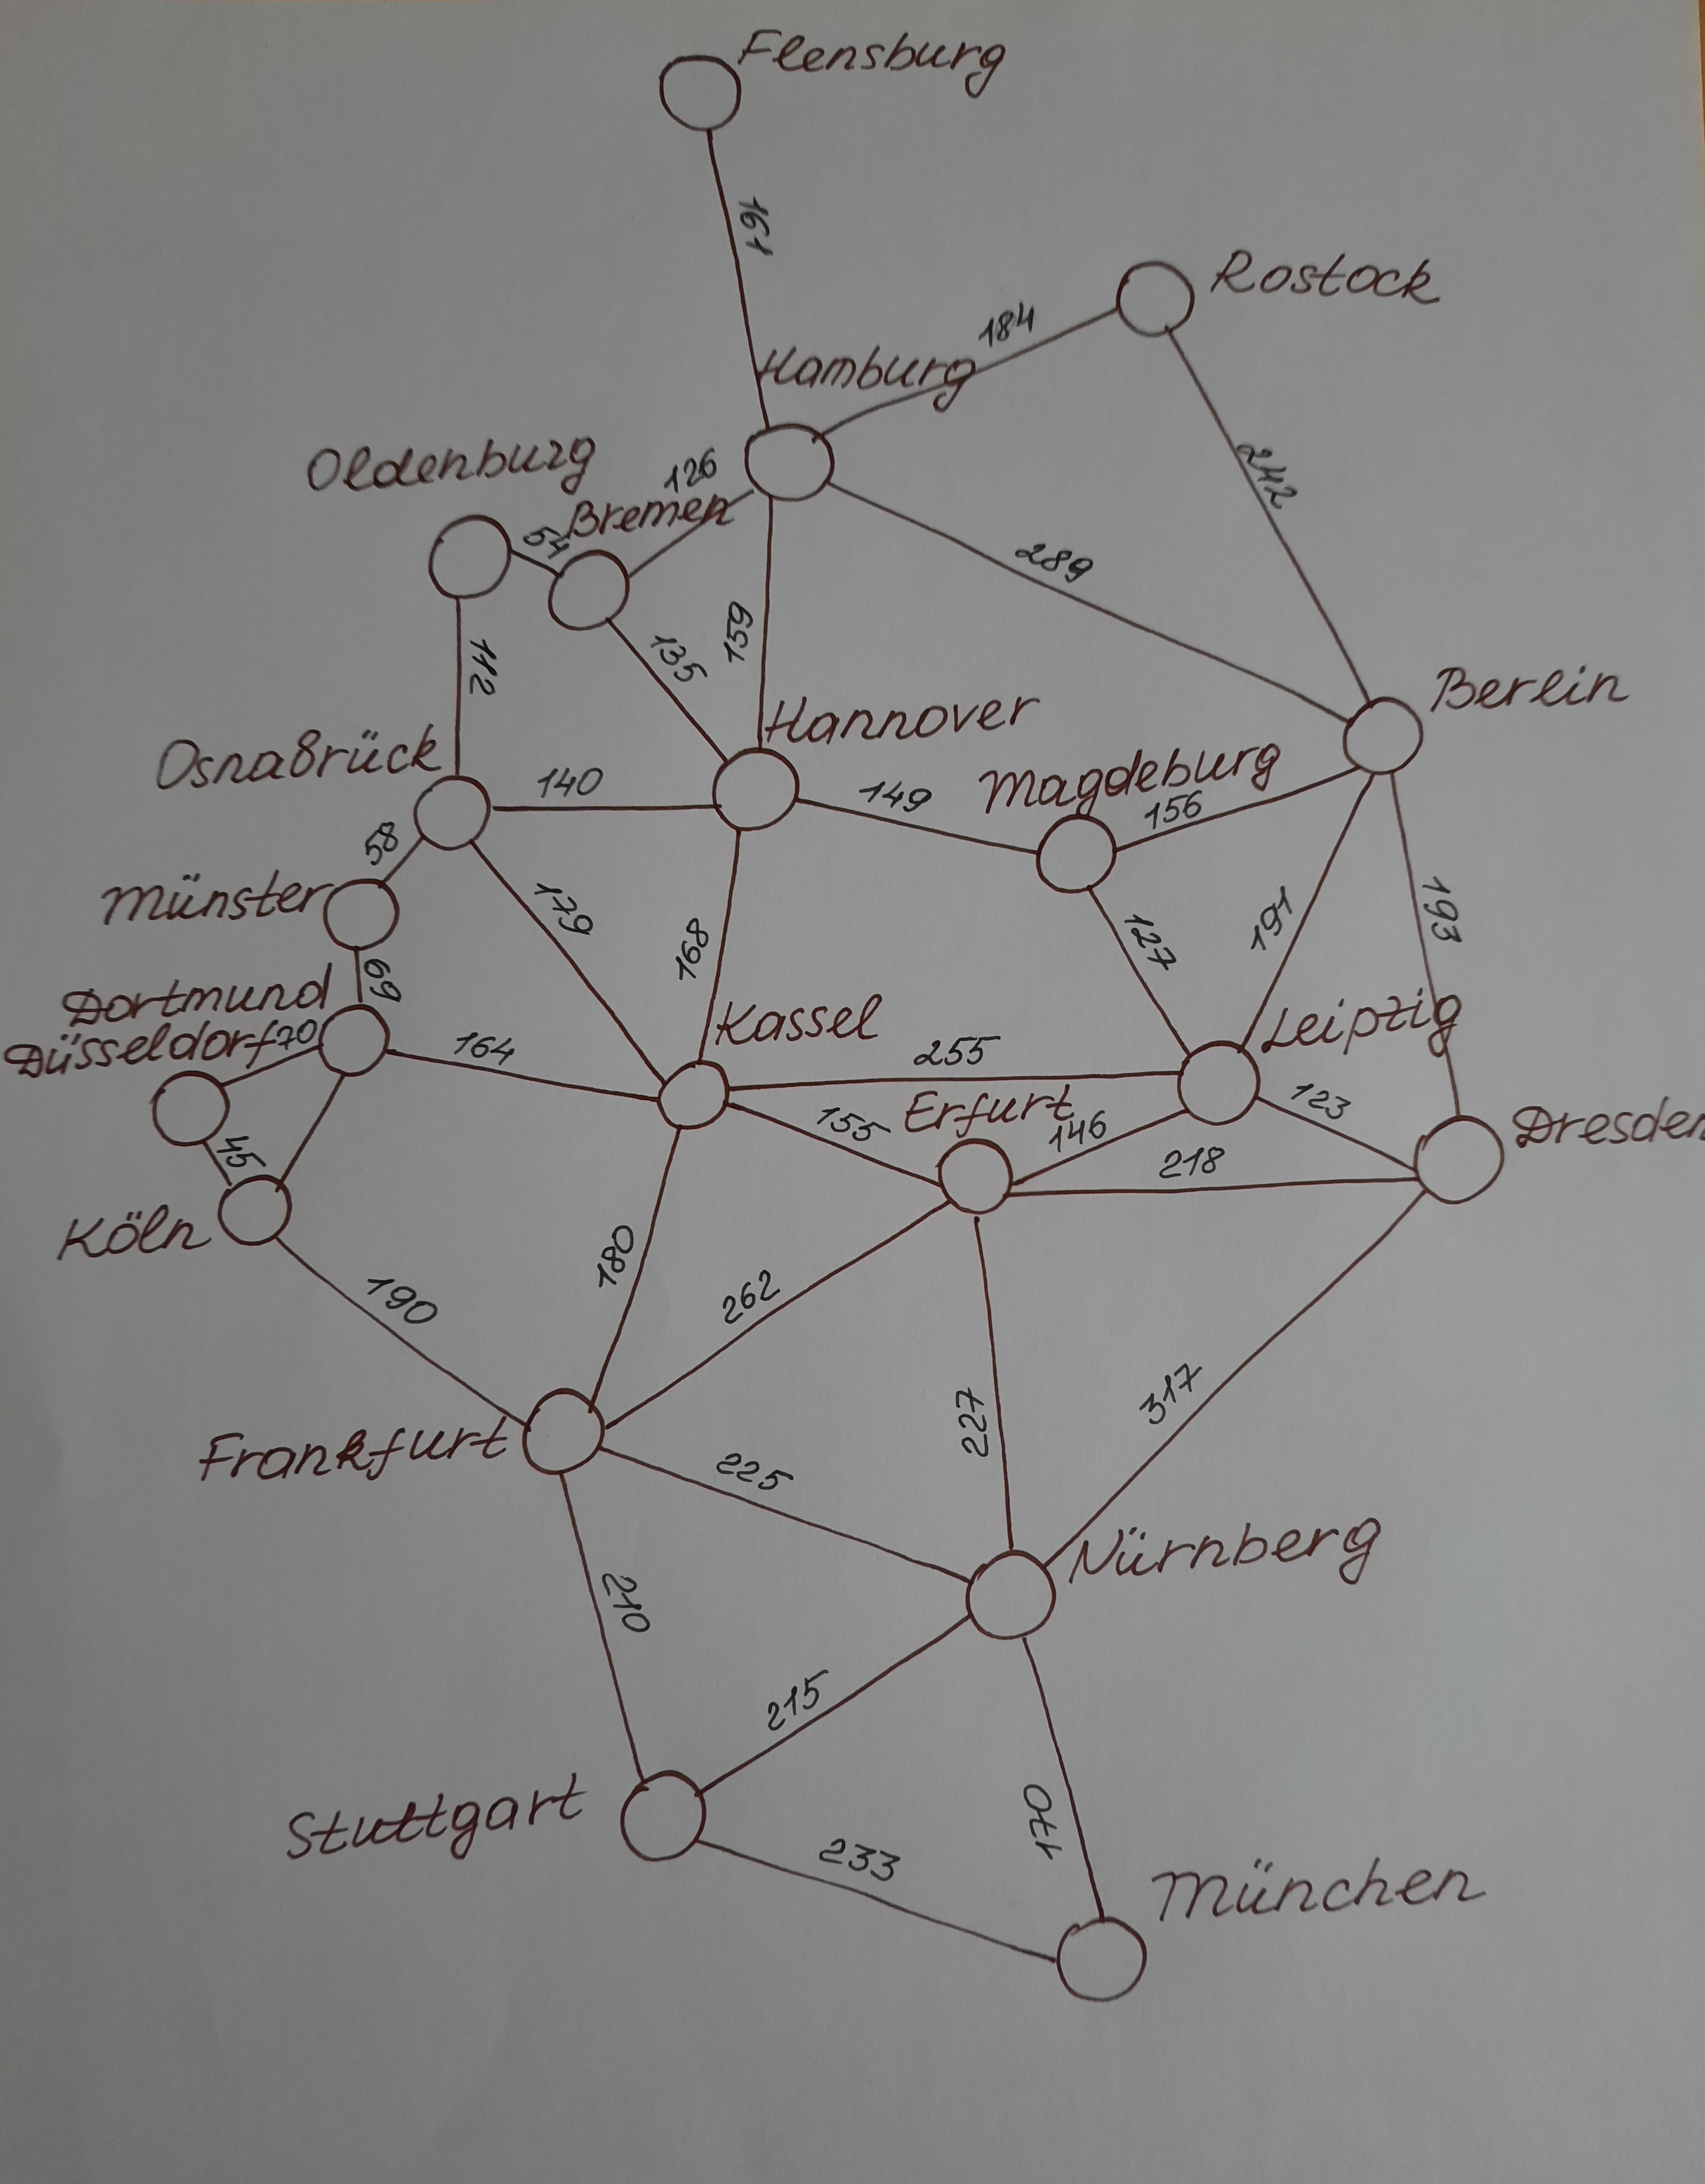 Flensburg
161
Rostock
184
Hamburg
242
Oldenburg
126
Bremen
54
289
159
135
112
Berlin
Hannover
Osnabrück
140
149
Magdeburg
156
58
Münster
179
168
127
191
193
69
Dortmund
Düsseldorf
70
164
Kassel
Leipzig
255
Erfurt
155
146
123
Dresden
218
45
Köln
180
262
190
317
227
Frankfurt
225
Nürnberg
210
215
Stuttgart
233
170
München